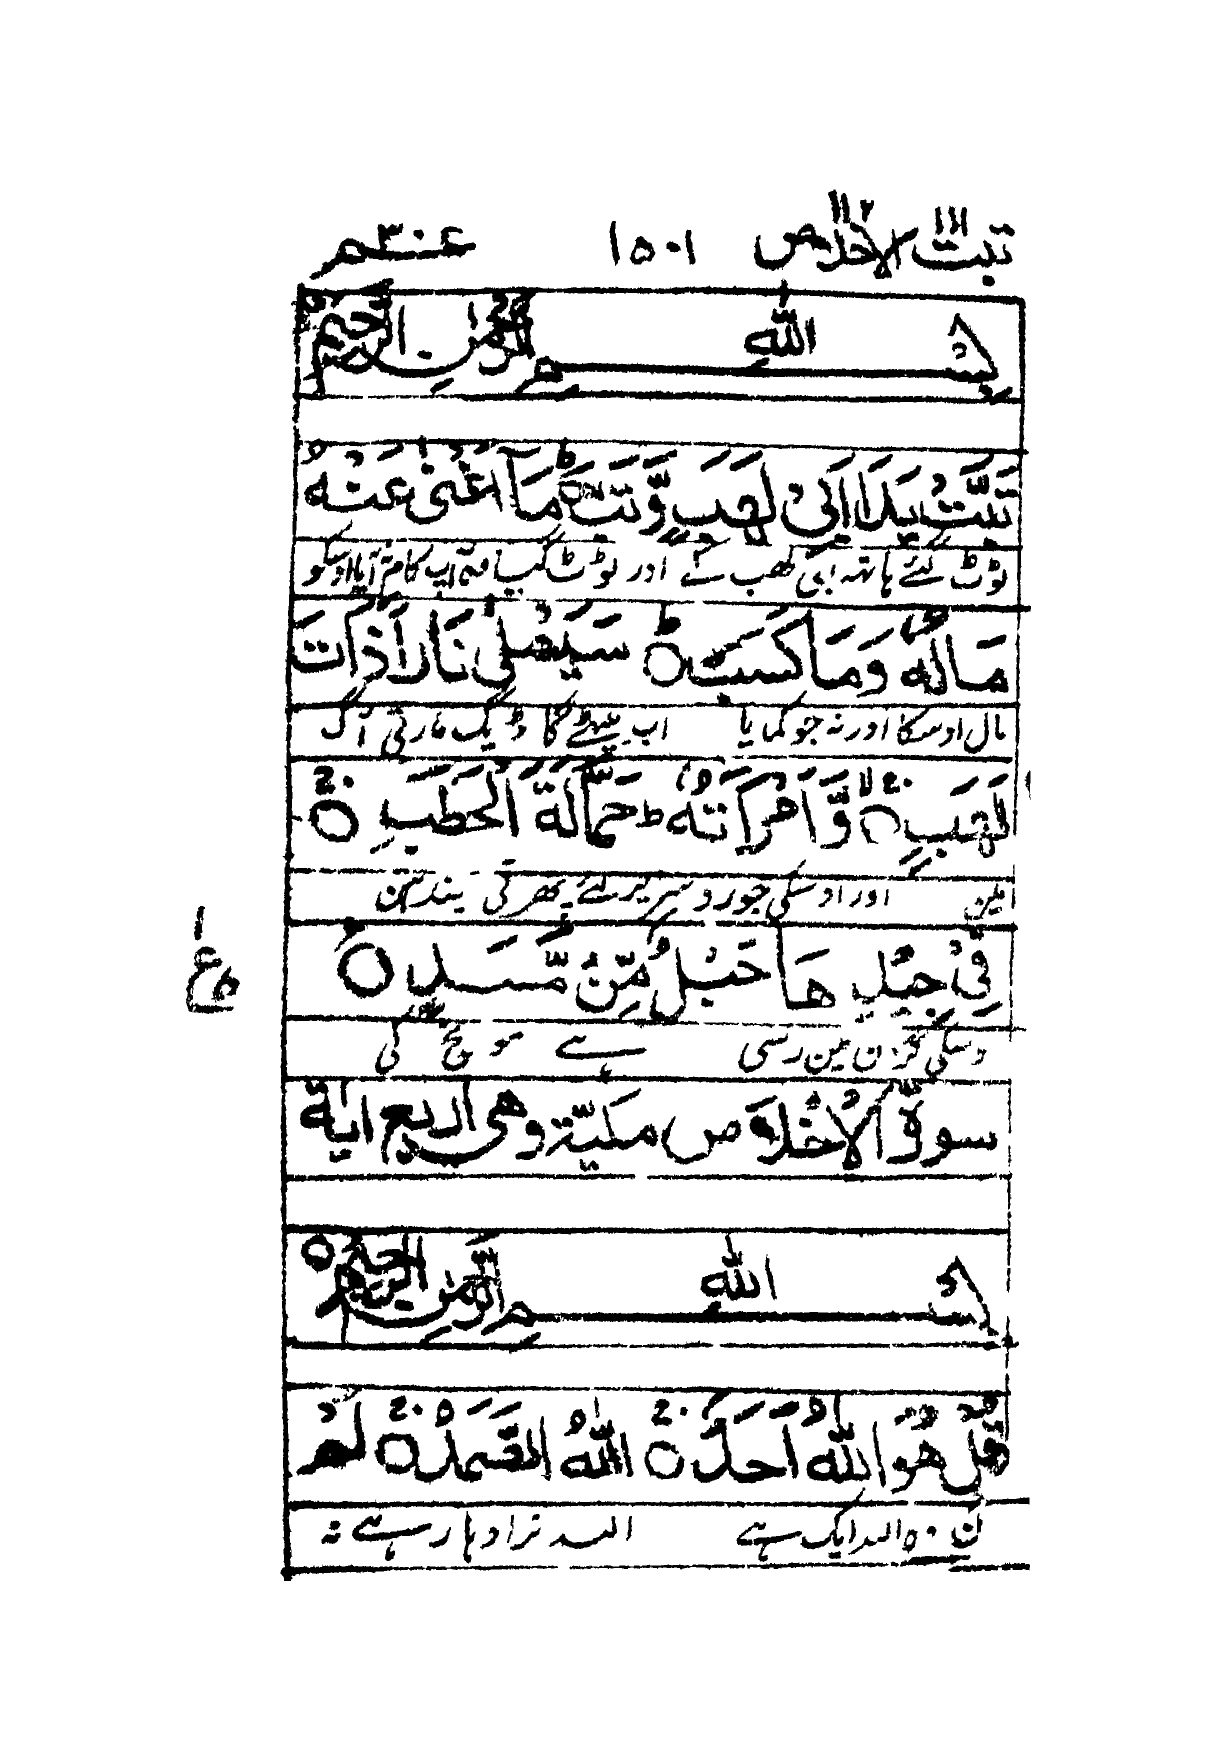 تبت ١١١ الاخلاص ١١٢ ١٥٠١ عـم ٣٠
بِسْمِ اللهِ الرَّحْمٰنِ الرَّحِيْمِ
تَبَّتْ يَدَا اَبِيْ لَهَبٍ وَّتَبَّ ط مَا اَغْنٰى عَنْهُ
ٹوٹ گئے ہاتھ ابی لھب کے اور ٹوٹ گیا وہ آپ کام نہ آیا اوسکو
مَالُهٗ وَمَا كَسَبَ ط سَيَصْلٰى نَارًا ذَاتَ
مال اوسکا اور نہ جو کمایا اب پیٹھے گا ڈیگ مارتی آگ
لَهَبٍ وَّامْرَاَتُهٗ ط حَمَّالَةَ الْحَطَبِ
مین اور اوسکی جورو سر پر لئے پھرتی یندہن
فِيْ جِيْدِهَا حَبْلٌ مِّنْ مَّسَدٍ
وسکی گردن مین رسی ہے مونج کی
ع
سورة الاخلاص مكية وهي اربع اية
بِسْمِ اللهِ الرَّحْمٰنِ الرَّحِيْمِ
قُلْ هُوَ اللهُ اَحَدٌ اَللهُ الصَّمَدُ لَمْ
وہ اللہ ایک ہے اللہ نرادہار ہے نہ